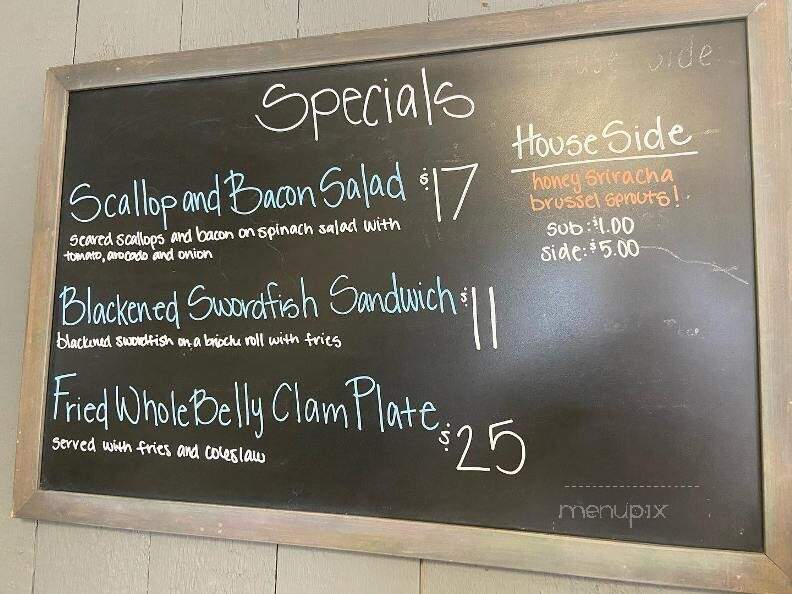 Specials
Scallop and Bacon Salad $17
seared scallops and bacon on spinach salad with
tomato, avocado and onion
Blackened Swordfish Sandwich $11
blackened swordfish on a brioche roll with fries
Fried Whole Belly Clam Plate $25
served with fries and coleslaw
House Side
House Side
honey sriracha
brussel sprouts!
sub: $1.00
side: $5.00
menupix